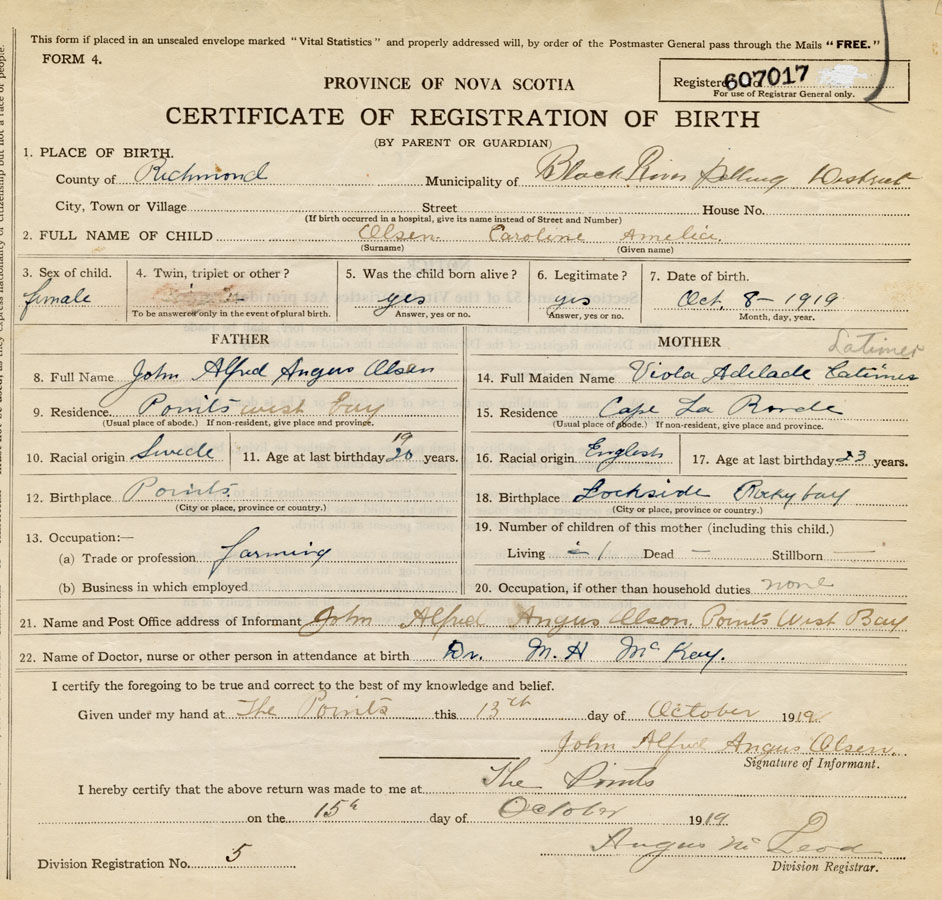 This form if placed in an unsealed envelope marked "Vital Statistics" and properly addressed will, by order of the Postmaster General pass through the Mails "FREE."
FORM 4.
Registered No. 607017
For use of Registrar General only.
PROVINCE OF NOVA SCOTIA
CERTIFICATE OF REGISTRATION OF BIRTH
(BY PARENT OR GUARDIAN)
1. PLACE OF BIRTH.
County of Richmond Municipality of Black River Polling District
City, Town or Village Street House No.
(If birth occurred in a hospital, give its name instead of Street and Number)
2. FULL NAME OF CHILD Olsen Caroline Amelia
(Surname) (Given name)
3. Sex of child. 4. Twin, triplet or other? 5. Was the child born alive? 6. Legitimate? 7. Date of birth.
female yes yes Oct. 8 - 1919
To be answered only in the event of plural birth. Answer, yes or no. Answer, yes or no. Month, day, year.
FATHER
8. Full Name John Alfred Angus Olsen
9. Residence Points west bay
(Usual place of abode.) If non-resident, give place and province.
10. Racial origin Swede 11. Age at last birthday 19 20 years.
12. Birthplace Points
(City or place, province or country.)
13. Occupation:—
(a) Trade or profession farming
(b) Business in which employed
MOTHER
Latimer
14. Full Maiden Name Viola Adelade Latimer
15. Residence Cape La Ronde
(Usual place of abode.) If non-resident, give place and province.
16. Racial origin English 17. Age at last birthday 23 years.
18. Birthplace Lochside Rocky bay
(City or place, province or country.)
19. Number of children of this mother (including this child.)
Living 1 Dead — Stillborn —
20. Occupation, if other than household duties none
21. Name and Post Office address of Informant John Alfred Angus Olson. Points West Bay
22. Name of Doctor, nurse or other person in attendance at birth Dr. M. H McKay.
I certify the foregoing to be true and correct to the best of my knowledge and belief.
Given under my hand at The Points this 13th day of October 1919
John Alfred Angus Olsen.
Signature of Informant.
I hereby certify that the above return was made to me at The Points
on the 15th day of October 1919.
Angus McLeod
Division Registrar.
Division Registration No. 5